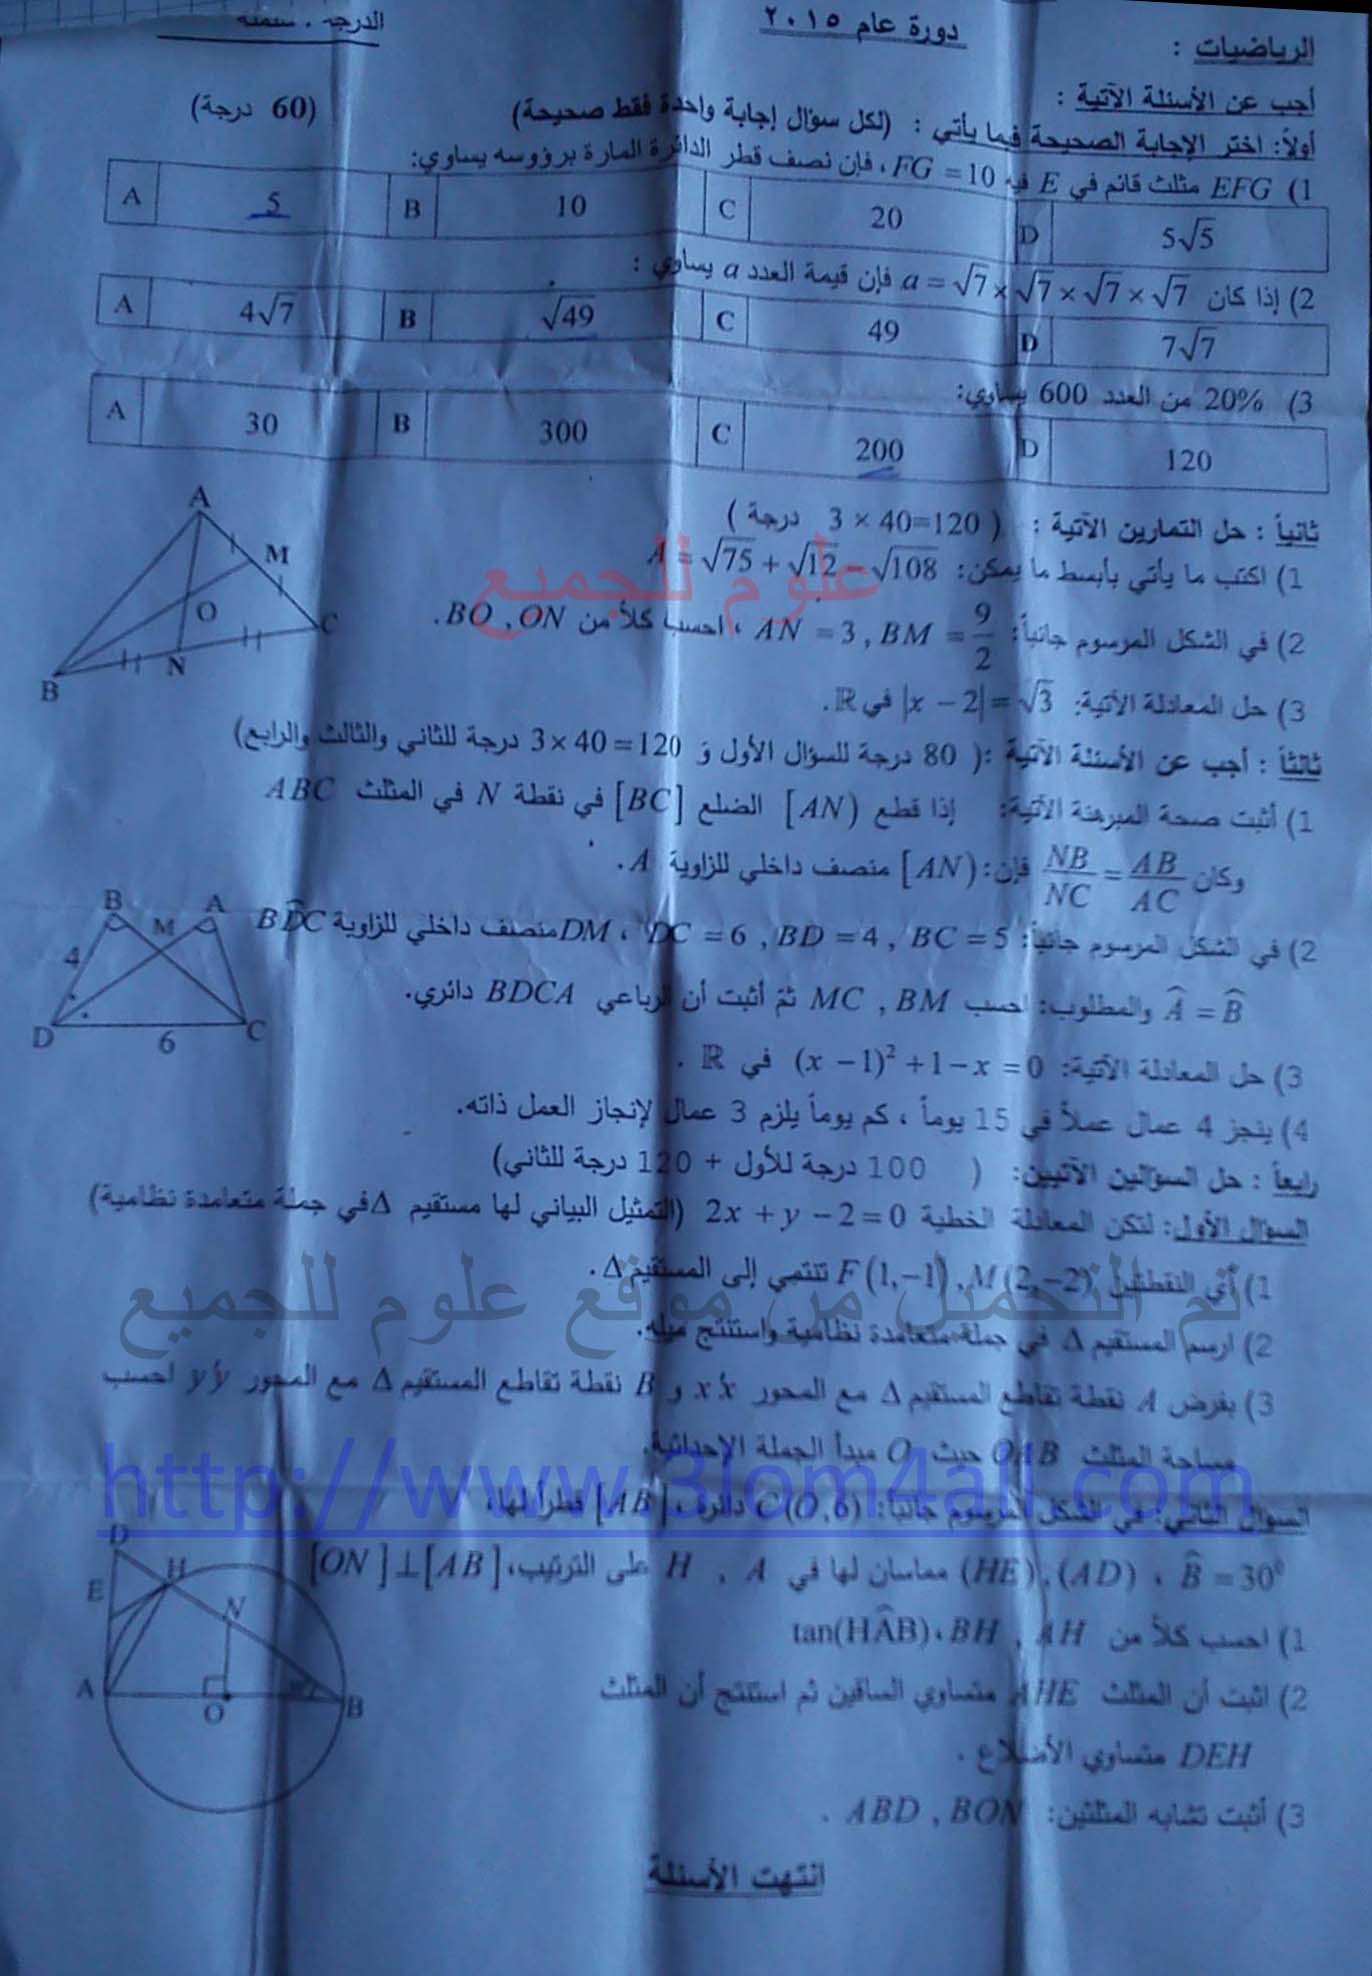 الرياضيات :
دورة عام ٢٠١٥
الدرجة : ستمئة
أجب عن الأسئلة الآتية :
أولاً: اختر الإجابة الصحيحة فيما يأتي : (لكل سؤال إجابة واحدة فقط صحيحة) (60 درجة)
1) EFG مثلث قائم في E فيه FG = 10 ، فإن نصف قطر الدائرة المارة برؤوسه يساوي:
A 5 B 10 C 20 D 5√5
2) إذا كان a = √7 × √7 × √7 × √7 فإن قيمة العدد a يساوي :
A 4√7 B √49 C 49 D 7√7
3) 20% من العدد 600 يساوي:
A 30 B 300 C 200 D 120
ثانياً : حل التمارين الآتية : ( 3 × 40=120 درجة )
1) اكتب ما يأتي بأبسط ما يمكن: A = √75 + √12 − √108
2) في الشكل المرسوم جانباً: BM = 9/2 , AN = 3 ، احسب كلاً من BO , ON .
3) حل المعادلة الآتية: |x − 2| = √3 في ℝ .
A M O C N B
ثالثاً : أجب عن الأسئلة الآتية :( 80 درجة للسؤال الأول وَ 3×40=120 درجة للثاني والثالث والرابع)
1) أثبت صحة المبرهنة الآتية: إذا قطع [AN) الضلع [BC] في نقطة N في المثلث ABC
وكان NB/NC = AB/AC فإن: [AN) منصف داخلي للزاوية A .
2) في الشكل المرسوم جانباً: DC = 6 , BD = 4 , BC = 5 ، DM منصف داخلي للزاوية BD̂C
Â = B̂ والمطلوب: احسب MC , BM ثمّ أثبت أن الرباعي BDCA دائري.
B M A 4 D 6 C
3) حل المعادلة الآتية: (x − 1)² + 1 − x = 0 في ℝ .
4) ينجز 4 عمال عملاً في 15 يوماً ، كم يوماً يلزم 3 عمال لإنجاز العمل ذاته.
رابعاً : حل السؤالين الآتيين: ( 100 درجة للأول + 120 درجة للثاني)
السؤال الأول: لتكن المعادلة الخطية 2x + y − 2 = 0 (التمثيل البياني لها مستقيم Δ في جملة متعامدة نظامية)
1) أي النقطتين F(1,−1) , M(2,−2) تنتمي إلى المستقيم Δ .
2) ارسم المستقيم Δ في جملة متعامدة نظامية واستنتج ميله.
3) بفرض A نقطة تقاطع المستقيم Δ مع المحور x'x و B نقطة تقاطع المستقيم Δ مع المحور y'y احسب
مساحة المثلث OAB حيث O مبدأ الجملة الإحداثية.
السؤال الثاني: في الشكل المرسوم جانباً: C(O,6) دائرة ، [AB] قطراً لها،
B̂ = 30° ، (AD) , (HE) مماسان لها في A , H على الترتيب، [ON] ⊥ [AB]
1) احسب كلاً من AH , BH ، tan(HÂB)
2) اثبت أن المثلث AHE متساوي الساقين ثم استنتج أن المثلث
DEH متساوي الأضلاع .
3) أثبت تشابه المثلثين: ABD , BON .
D H E N A O B
انتهت الأسئلة
علوم للجميع
تم التحميل من موقع علوم للجميع
http://www.3lom4all.com